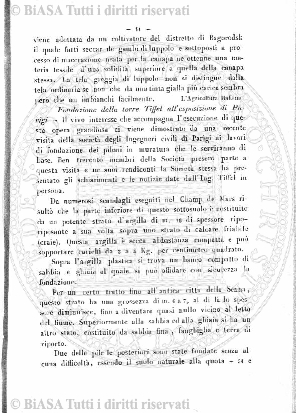 — 54 —
viene adottata da un coltivatore del distretto di Bagorodsk
il quale fatti seccar de gambi di luppolo e sottoposti a pro-
cesso di macerazione usato per la canapa ne ottenne una ma-
teria tessile d'una solidità superiore a quella della canapa
stessa. La tela greggia di luppolo non si distingue dalla
tela ordinaria se non che da una tinta gialla più carica sembra
però che un imbianchi facilmente. L'Agricoltore
Fondazione della torre Tiffel all'esposizione di Pa-
rigi — Il vivo interesse che accompagna l'esecuzione di que-
sto opera grandiosa ci viene dimostrato da una recente
visita della società degli Ingegneri civili di Parigi ai lavori
di fondazione dei piloni in muratura che le serviranno di
base. Ben trecento membri della Società presero parte a
questa visita e nei suoi rendiconti la Società stessa ha pre-
sentato gli schiarimenti e le notizie date dall'Ing. Tiffel in
persona.
De numerosi scandagli eseguiti nel Champ de Mars ri-
sultò che la parte inferiore di questo sottosuolo è costituito
da un potente strato d'argilla di m. di spessore ripo-
riposante a sua volta sopra uno strato di calcare friabile
(craie). Questa argilla è secca abbastanza compatta e può
sopportare carichi da 3 a 4 Kg. per centimetro quadrato.
Sopra l'argilla plastica si trova un banco compatto di
sabbia e ghiaia al quale si può affidare con sicurezza la
fondazione.
Per un certo tratto fino all'antica riva della Senna,
questo strato ha una grossezza di m. 6 a 7, al di là lo spes-
sore diminuisce, fino a diventare quasi nullo vicino al letto
del fiume. Superiormente alla sabbia ed alla ghiaia si ha un
altro stato, costituito da sabbia fina, fanghiglia e terra di
riporto.
Due delle pile le posteriori sono state fondate senza al
cuna difficoltà, essendo il suolo naturale alla quota + e